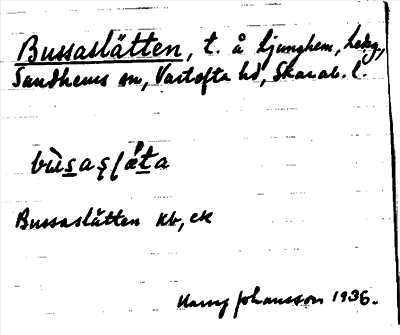 Bussaslätten, t. å Ljunghem, ledig,
Sandhems sn, Vartofta hd, Skarab. l.
Bussaslätten kb, ek
Harry Johansson 1936.